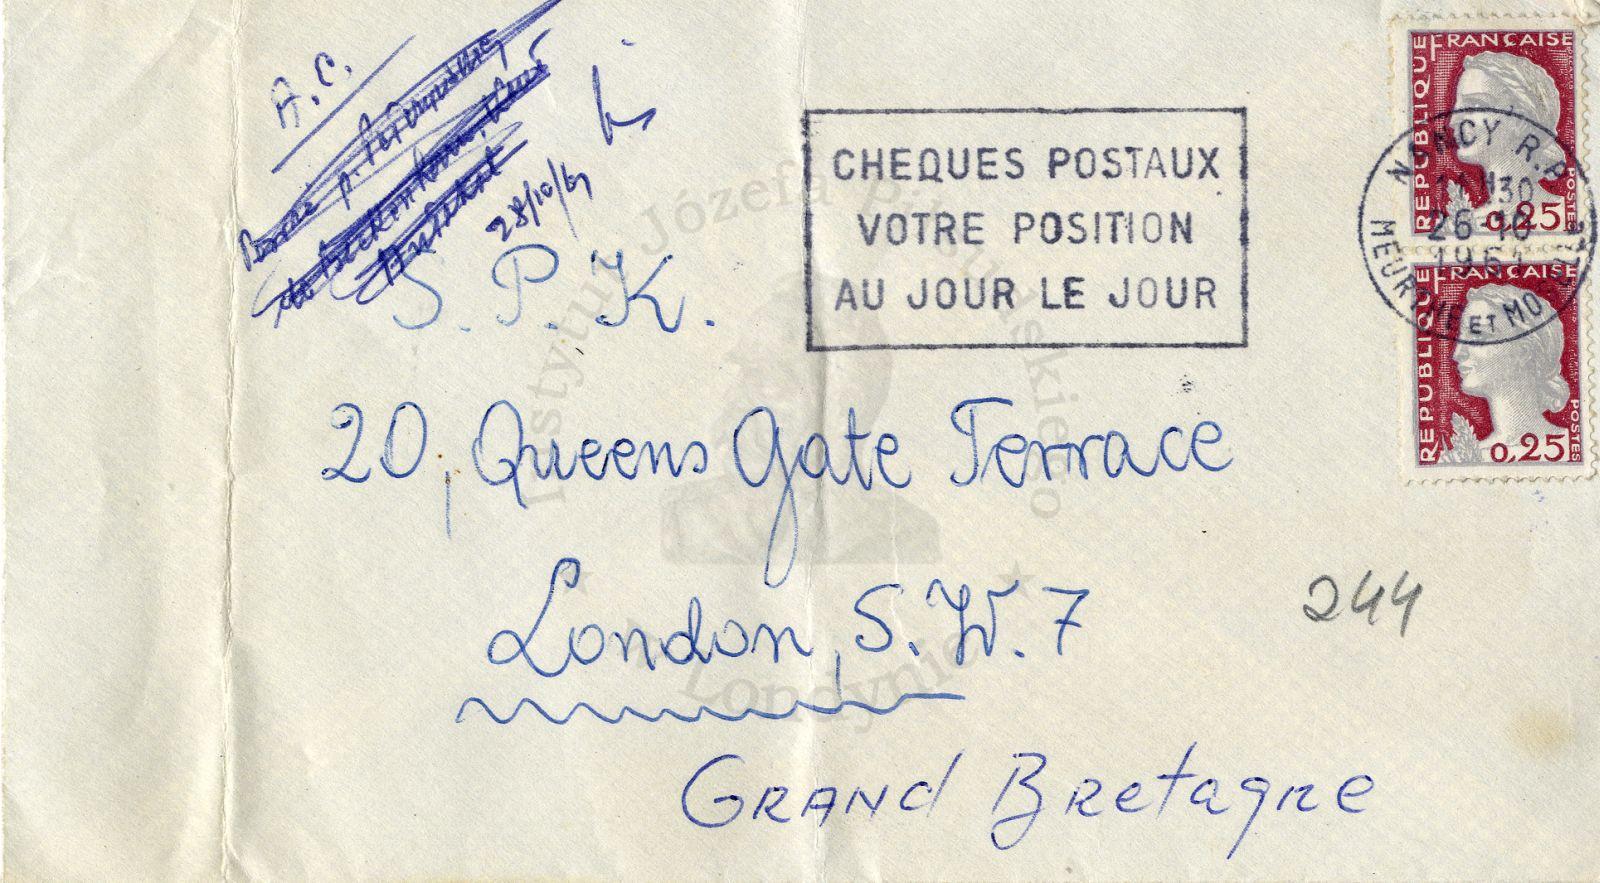 A.C.
28/10/61
S.P.K.
20, Queens Gate Terrace
London, S.W. 7
GRANd BRetagne
244
CHEQUES POSTAUX
VOTRE POSITION
AU JOUR LE JOUR
REPUBLIQUE FRANÇAISE
POSTES
0,25
NANCY R.P.
11H30
26-10
1961
MEURTHE ET MOSELLE
REPUBLIQUE FRANÇAISE
POSTES
0,25
Instytut Józefa Piłsudskiego
w Londynie